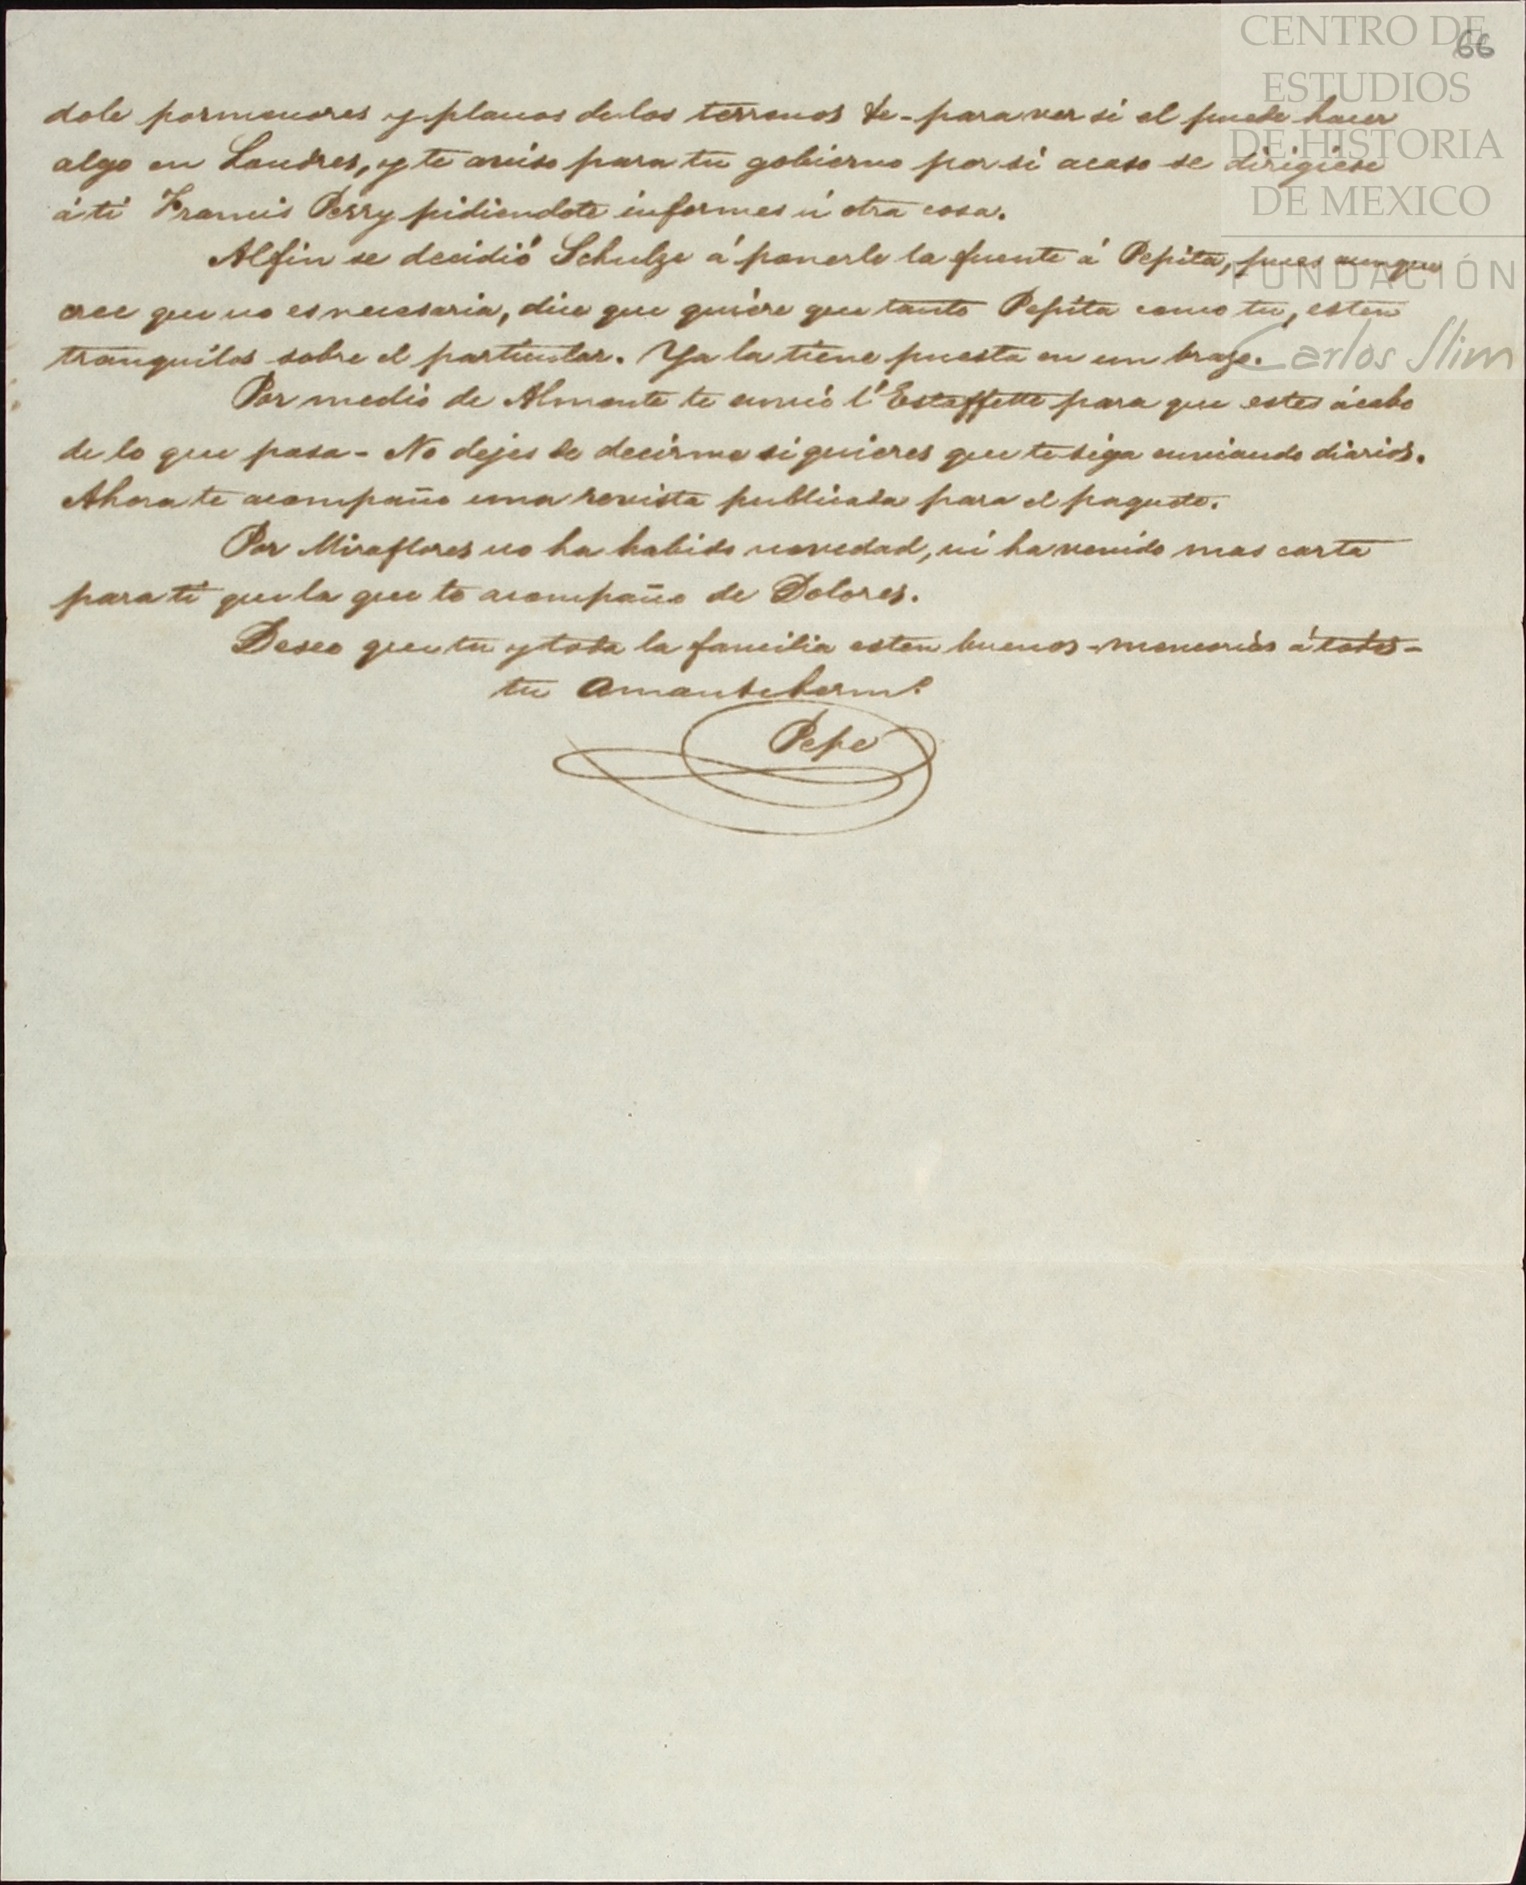 66
CENTRO DE
ESTUDIOS
DE HISTORIA
DE MEXICO
FUNDACIÓN
Carlos Slim
dole pormenores y planos de los terrenos &e - para ver si el puede hacer
algo en Londres, y te aviso para tu gobierno por si acaso se dirigiese
á ti Francis Perry pidiendote informes ú otra cosa.
Alfin se decidió Schulze á ponerle la fuente á Pepita, pues aunque
cree que no es necesaria, dice que quiere que tanto Pepita como tu, esten
tranquilos sobre el particular. Ya la tiene puesta en un brazo.
Por medio de Almonte te envió l'Estaffette para que estes ácabo
de lo que pasa - No dejes de decirme si quieres que te siga enviando diarios.
Ahora te acompaño una revista publicada para el paquete.
Por Miraflores no ha habido novedad, ni ha venido mas carta
para ti que la que te acompaño de Dolores.
Deseo que tu y toda la familia esten buenos - memorias á todos -
tu amante herm.o
Pepe